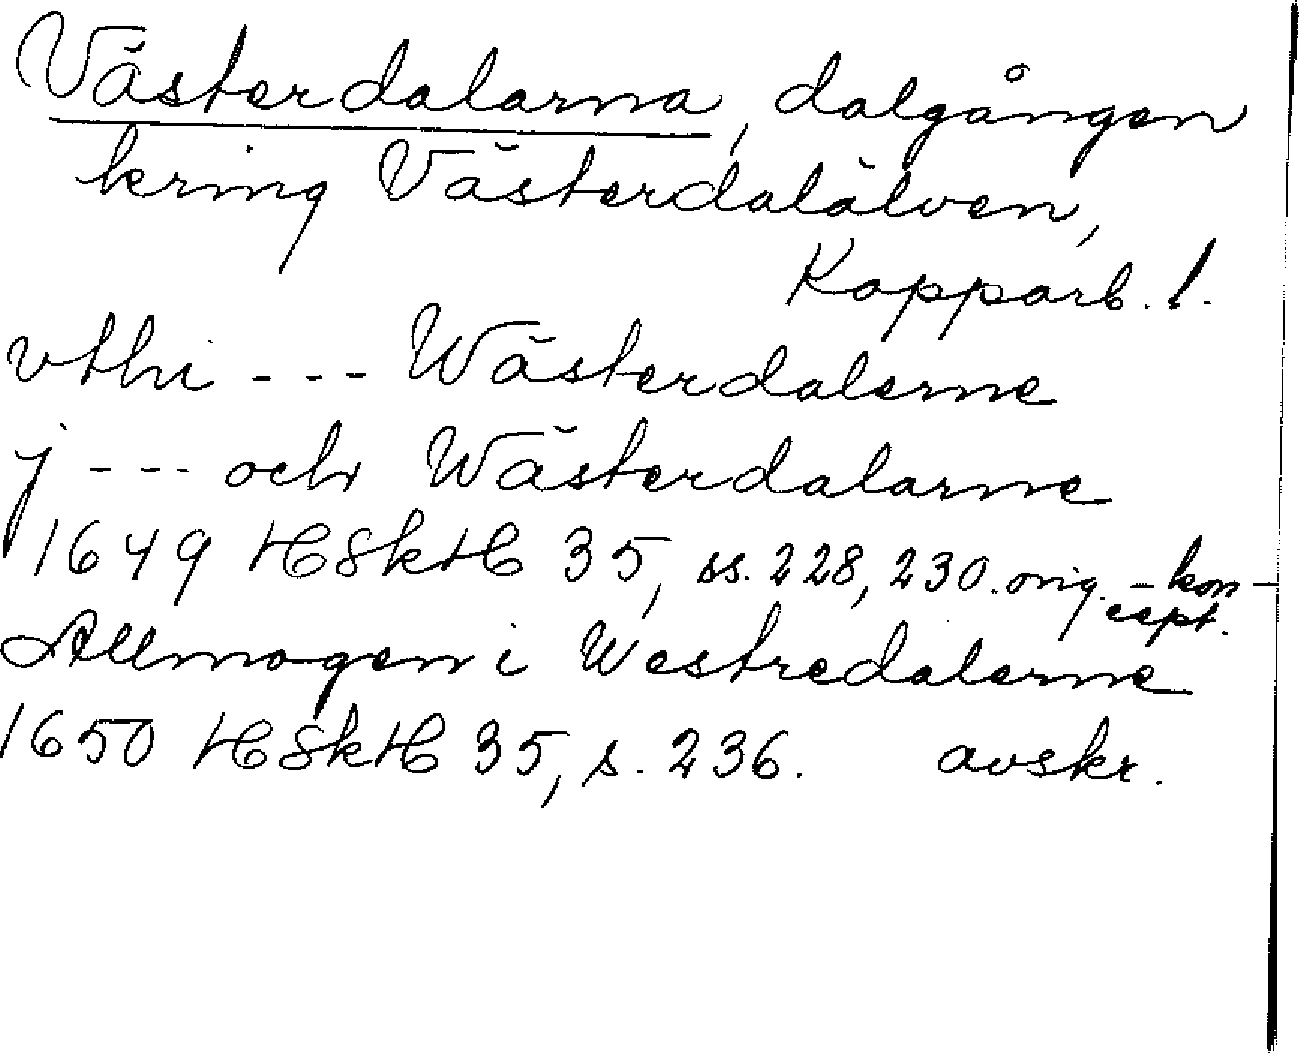 Västerdalarna, dalgången
kring Västerdalälven,
Kopparb. l.
vthi - - - Wästerdalerne
j - - - och Wästerdalarne
1649 HSkH 35, ss. 228, 230. orig. - kon-
cept.
Allmogen i Westredalerne
1650 HSkH 35, s. 236. avskr.